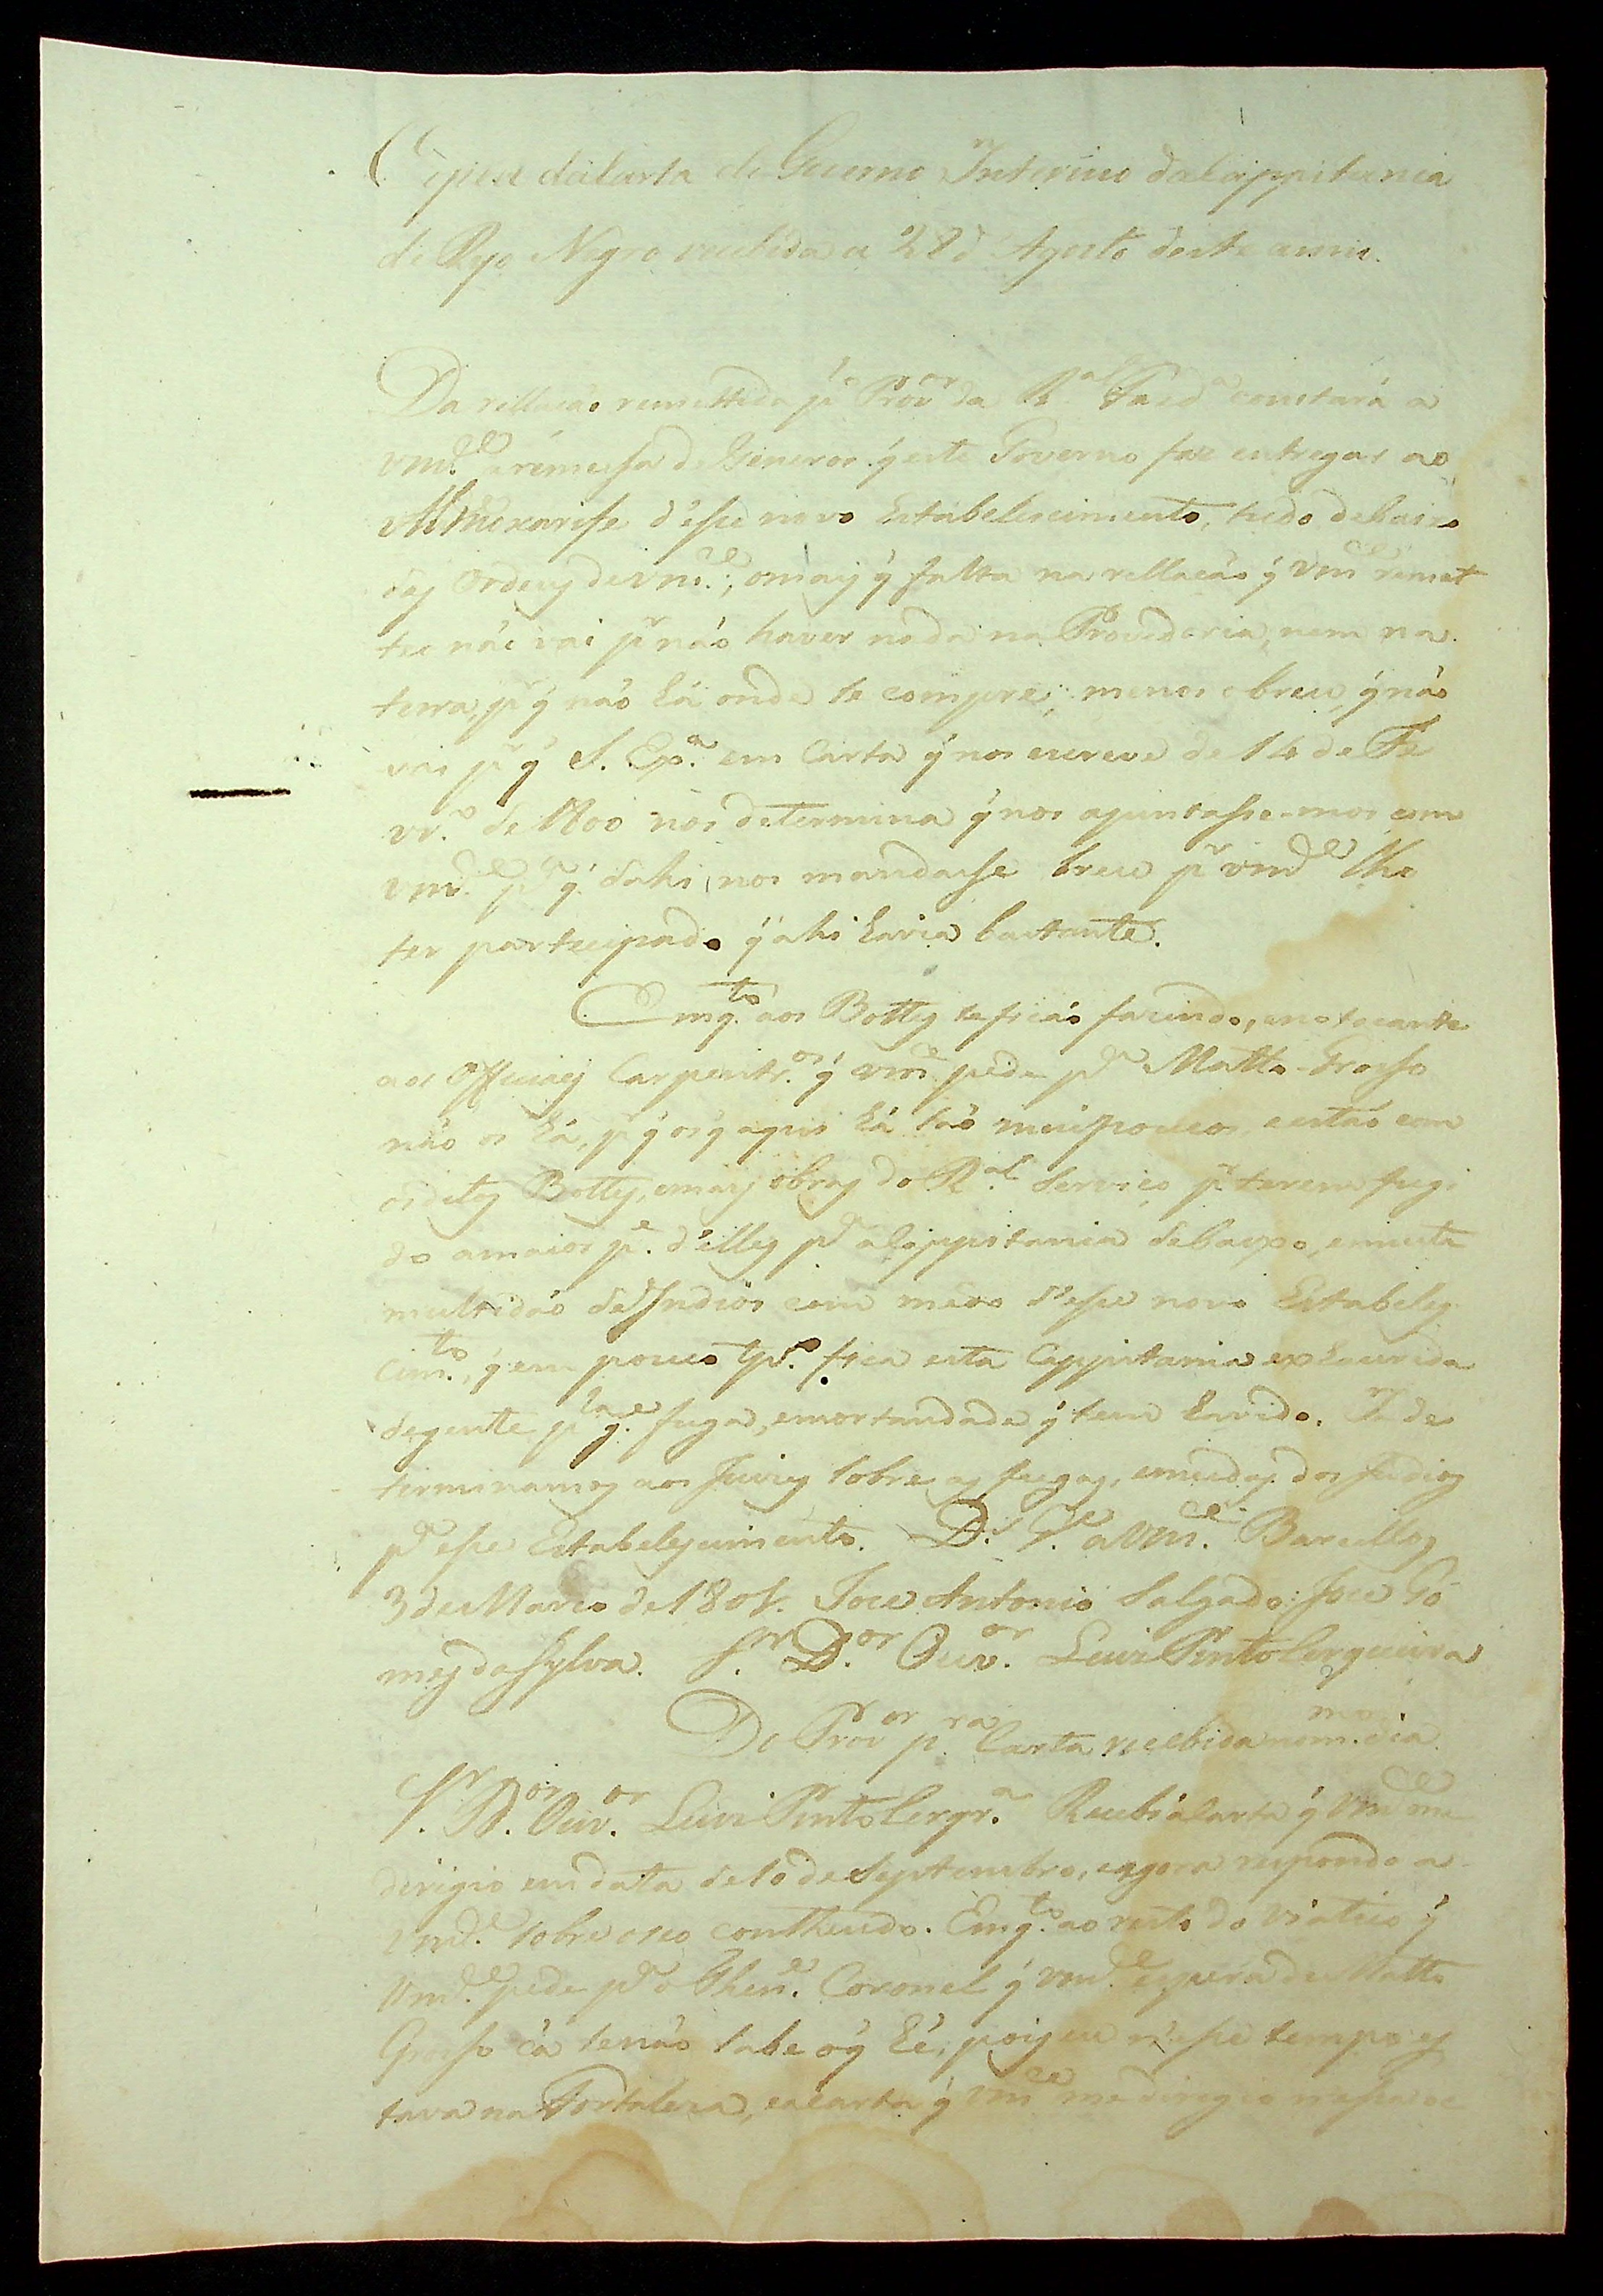 Copia da Carta do Governo Interino da Cappitania
do Ryo Negro recebida a 28 d'Agosto deste anno.
Da rellacáo remettida p.lo Prov.or da R.al Fazd.a constará a
Vm.ce a remessa de Generos q̃ este Governo faz entregar ao
Almoxarife d'esse novo Estabelescimento, tudo debaixo
das Ordens de Vm.ce; o mais q̃ falta na rellacáo q̃ Vm.ce remet
te náo vai p.r náo haver nada na Provedoria, nem na
terra, p.r q̃ náo há onde se compre; menos o breu, q̃ náo
vai p.r q̃ S. Ex.a em Carta q̃ nos escreve de 14 de Fe
vr.o de 1800 nos determina q̃ nos ajuntasse-mos com
Vm.ce p.a q̃ dahi nos mandasse breu p.r Vm.ce lhe
ter participado q̃ ahi havia bastante.
Emq.to aos Bottes se ficáo fazendo, e no tocante
aos Officiaes Carpentr.os q̃ Vm.ce pede p.a Matto-Grosso
náo os há, p.r q̃ os q̃ aqui há sáo mui poucos, e estáo com
os ditos Bottes, e mais obras do R.al Servico p.r terem fugi
do a maior p.e d'elles p.a a Cappitania debaxo, e muita
multidáo de Indios com medo d'esse novo Estabeles
cim.to, q̃ em pouco tp.o fica esta Cappitania exhaurida
de gente p.la g.e fuga, e mortandade q̃ tem havido. Ja de
terminamos aos Juizes sobre as fugas, e mudas dos Indios
p.a esse Estabelescimento. D.s G.e a Vm.ce Barcellos
3 de Marco de 1801. Joze Antonio Salgado: Joze Go
mes da Sylva. S.r D.or Ouv.or Luiz Pinto Cerqueira
Do Prov.or p.ra Carta recebida no m.mo dia
S.r D.or Ouv.or Luiz Pinto Cerqr.a Recebi a Carta q̃ Vm.ce me
dirigio em data de 10 de Septembro, e agora respondo a
Vm.ce sobre o seo contheudo. Emq.to ao resto do Viatico q̃
Vm.ce pede p.a o Then.e Coronel q̃ Vm.ce espera de Matto
Grosso cá se náo sabe o q̃ hé; pois eu n'esse tempo es
tava na Fortaleza, e a Carta q̃ Vm.ce me dirigio nessa oc